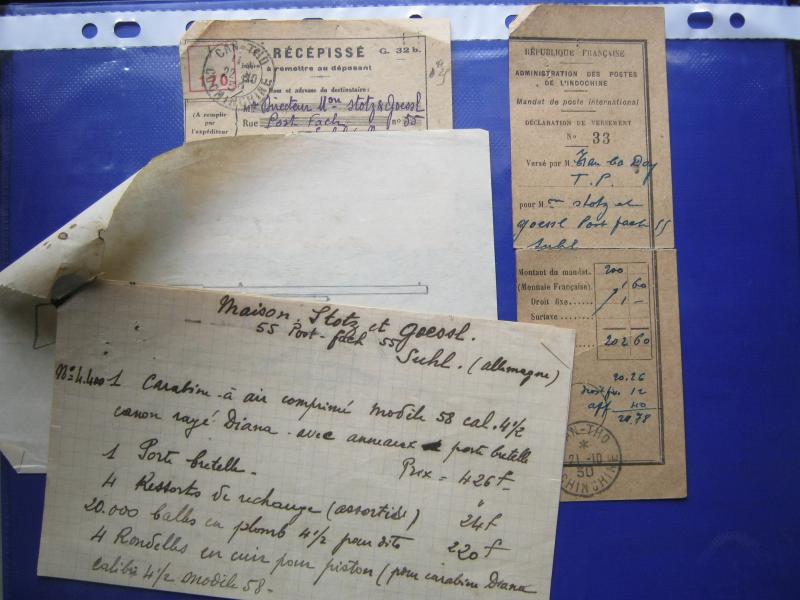 RÉCÉPISSÉ G. 32 b.
à remettre au déposant
CAN-THO
COCHINCHINE
Nom et adresse du destinataire:
Mr Directeur Mon Stotz & Goessl
Rue Post Fach no 55
(A remplir
par
l'expéditeur
RÉPUBLIQUE FRANÇAISE
ADMINISTRATION DES POSTES
DE L'INDOCHINE
Mandat de poste international
DÉCLARATION DE VERSEMENT
No 33
Versé par M. Tran ba Day
T.P.
pour M on Stotz et
goessl Post fach 55
Suhl
Montant du mandat. 200
(Monnaie Française). 1 60
Droit fixe..... 1 —
Surtaxe
202 60
20.26
Droit fixe 12
aff 40
20.78
CAN-THO
21-10
30
COCHINCHINE
Maison Stotz et Goessl.
55 Post-fach 55
Suhl. (allemagne)
No 4.400 1 Carabine à air comprimé modèle 58 cal. 4 1/2
canon rayé Diana avec anneaux porte bretelle
Prix = 426 f
1 Porte bretelle - "
4 Ressorts de rechange (assortis) 24 f
20.000 balles en plomb 4 1/2 pour dito 220 f
4 Rondelles en cuir pour piston (pour carabine Diana
calibre 4 1/2 modèle 58 -